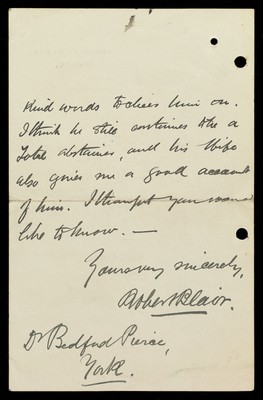 Kind words to cheer him on.
I think he still continues to be a
total abstainer, and his Wife
also gives me a good account
of him. I thought you would
like to know. —
Yours very sincerely,
Robert Blair.
Dr Bedford Pierce,
York.